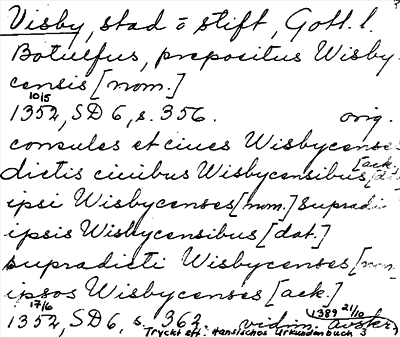 Visby, stad o stift, Gotl. l.
Botulfus, prepositus Wisby-
censis [nom.]
10/5
1352, SD 6, s. 356. orig.
consules et ciues Wisbycenses
[ack.]
dictis ciuibus Wisbycensibus [dat
ipsi Wisbycenses [nom.] supradi
ipsis Wisbycensibus [dat.]
supradicti Wisbycenses [nom
ipsos Wisbycenses [ack.]
17/6 1389 21/10
1352, SD 6, s. 362. vidim. avskr.
Tryckt eft. Hansisches Urkundenbuch 3